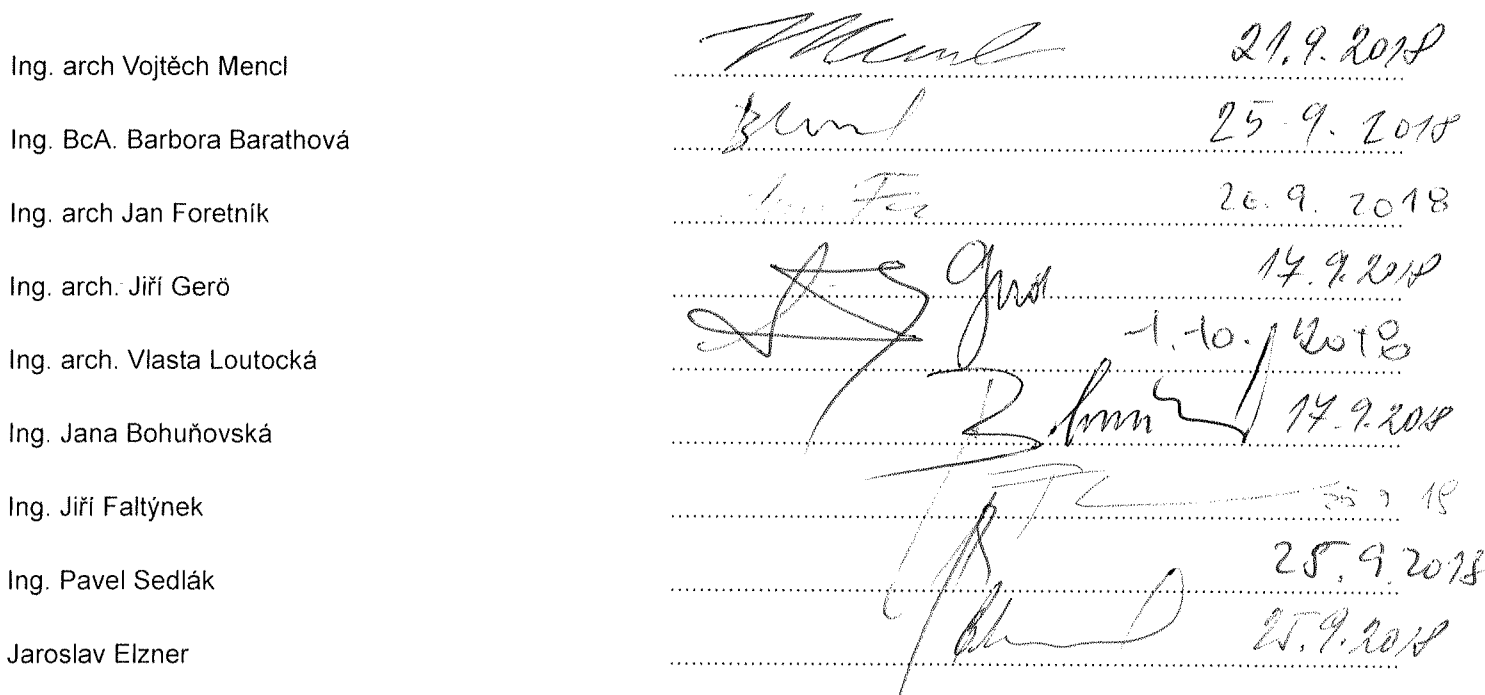 Ing. arch Vojtěch Mencl 21.9.2018
Ing. BcA. Barbora Barathová 25.9.2018
Ing. arch Jan Foretník 26.9.2018
Ing. arch. Jiří Gerö 17.9.2018
Ing. arch. Vlasta Loutocká 1.10.2018
Ing. Jana Bohuňovská 17.9.2018
Ing. Jiří Faltýnek
Ing. Pavel Sedlák 25.9.2018
Jaroslav Elzner 25.9.2018